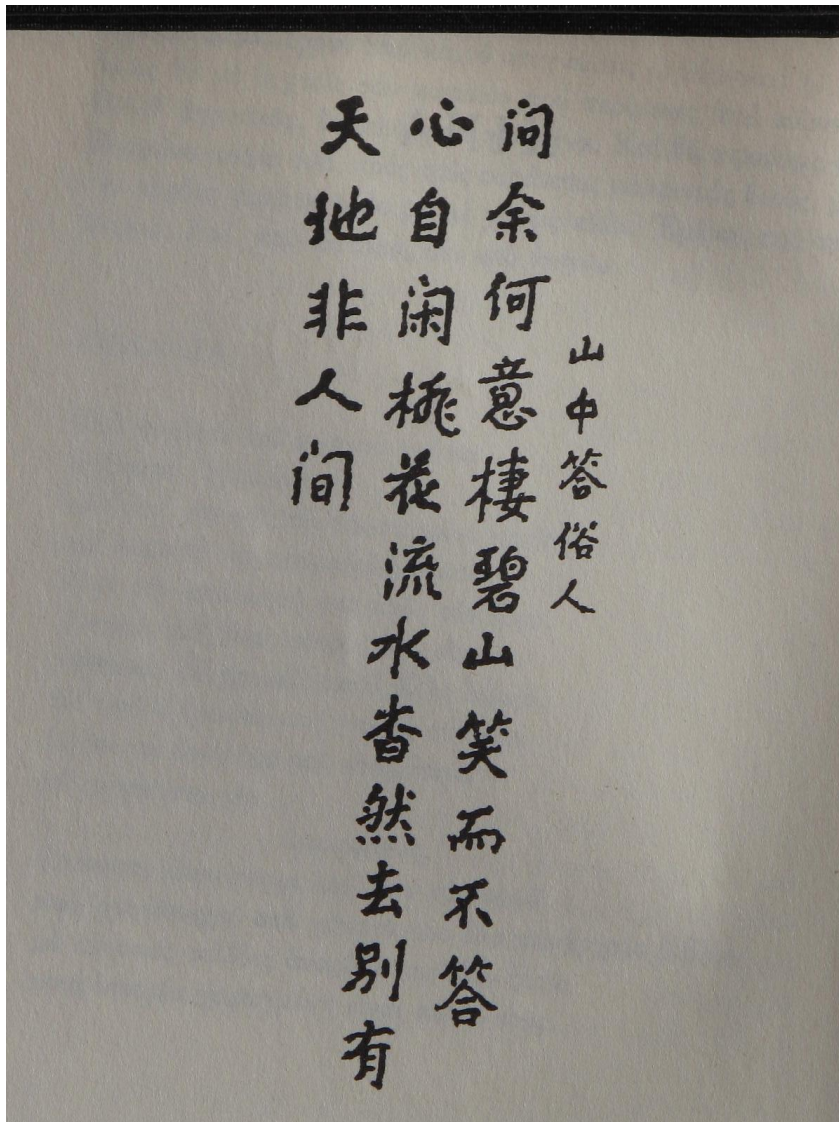 山中答俗人
问余何意棲碧山笑而不答
心自闲桃花流水杳然去别有
天地非人间